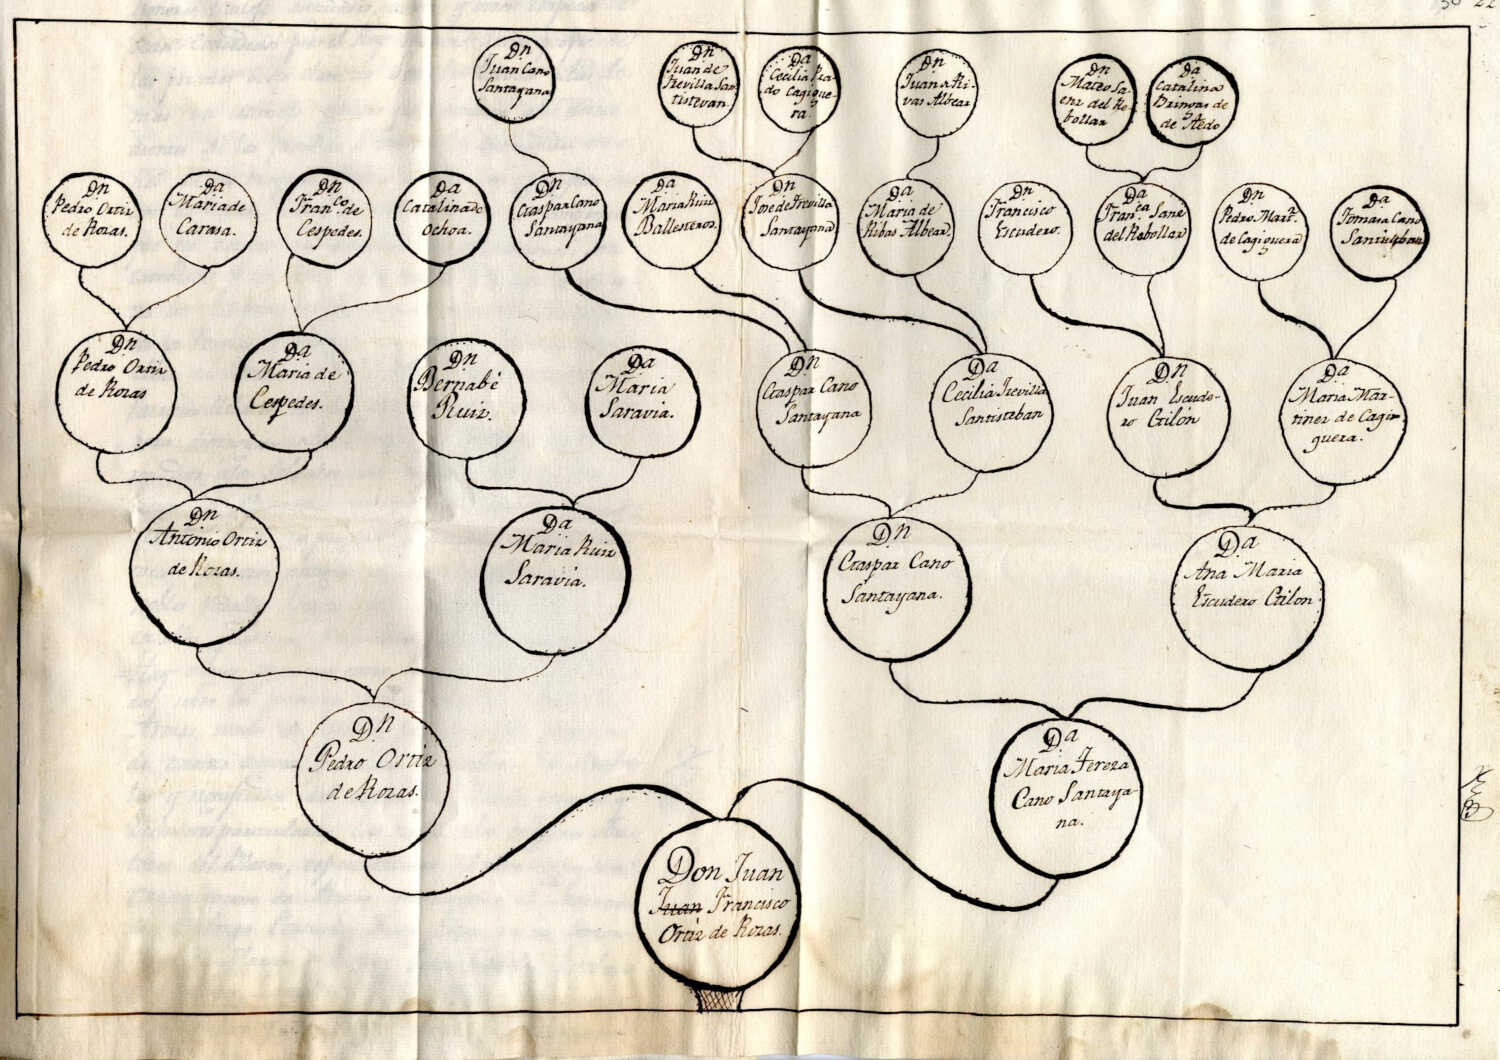 Dn
Juan Cano
Santayana
Dn
Juan de
Revilla San
tistevan.
Da
Cecilia Pra-
do Cagigue-
ra.
Dn
Juan a Ri-
vas Albear
Dn
Mateo Sa-
enz del Re
bollar
Da
Catalina
Bringas de
de Aedo
Dn
Pedro Ortiz
de Rozas.
Da
Maria de
Carasa.
Dn
Franco. de
Cespedes.
Da
Catalina de
Ochoa.
Dn
Gaspar Cano
Santayana
Da
Maria Ruiz
Ballesteros.
Dn
Jose de Trevilla
Santayana
Da
Maria de
Ribas Albear.
Dn
Francisco
Escudero.
Da
Franca Sanz
del Rebollar
Dn
Pedro Mart.
de Cagiguera
Da
Tomasa Cano
Santisteban
Dn
Pedro Ortiz
de Rozas
Da
Maria de
Cespedes.
Dn
Bernabé
Ruiz.
Da
Maria
Saravia.
Dn
Gaspar Cano
Santayana
Da
Cecilia Trevilla
Santisteban
Dn
Juan Escude-
ro Gilón
Da
Maria Mar-
tinez de Cagi-
guera.
Dn
Antonio Ortiz
de Rozas.
Da
Maria Ruiz
Saravia.
Dn
Gaspar Cano
Santayana.
Da
Ana Maria
Escudero Gilon
Dn
Pedro Ortiz
de Rozas.
Da
Maria Tereza
Cano Santaya-
na.
Don Juan
Juan Francisco
Ortiz de Rozas.